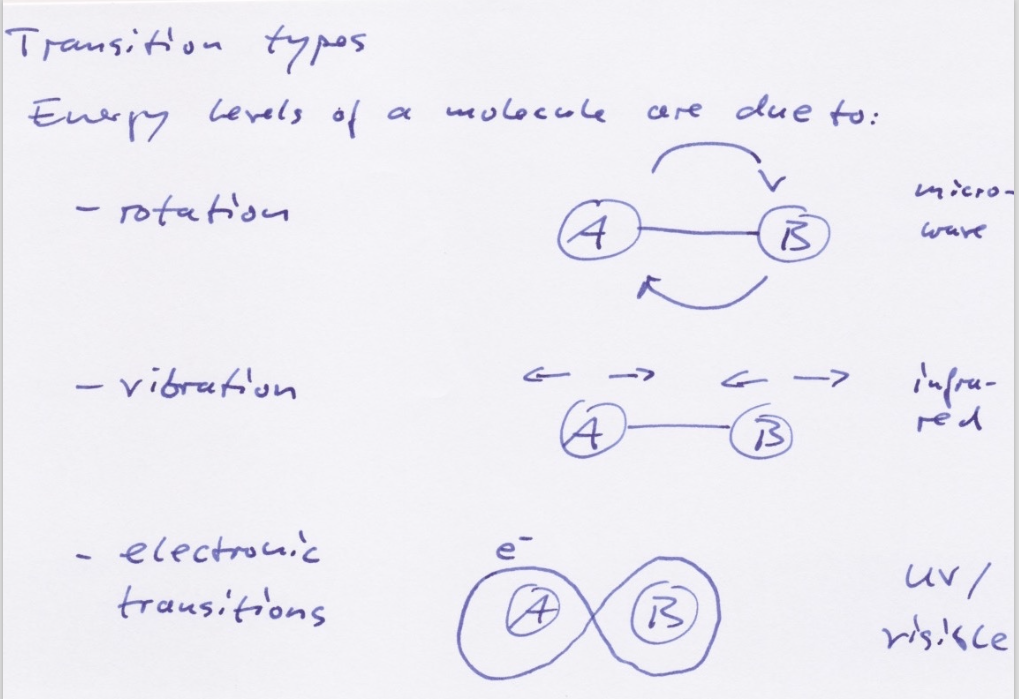 Transition types
Energy levels of a molecule are due to:
- rotation
A B
micro-
wave
- vibration
A B
infra-
red
- electronic
transitions
e⁻
A B
UV/
visible